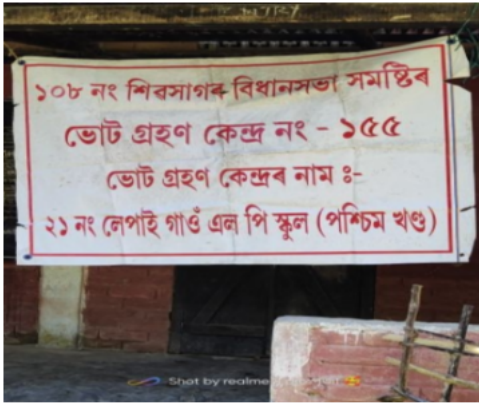 ১০৮ নং শিৱসাগৰ বিধানসভা সমষ্টিৰ
ভোট গ্ৰহণ কেন্দ্ৰ নং - ১৫৫
ভোট গ্ৰহণ কেন্দ্ৰৰ নাম ঃ-
২১ নং লেপাই গাওঁ এল পি স্কুল (পশ্চিম খণ্ড)
Shot by realme